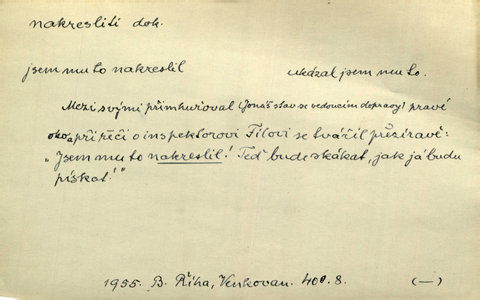 nakresliti dok.
jsem mu to nakreslil ukázal jsem mu to.
Mezi svými přimhuřoval (Jonáš stav se vedoucím dopravy) pravé
oko a při řeči o inspektorovi Fílovi se tvářil přezíravě:
"Jsem mu to nakreslil! Teď bude skákat, jak já budu
pískat!"
1955. B. Říha, Venkovan. 8. (—)